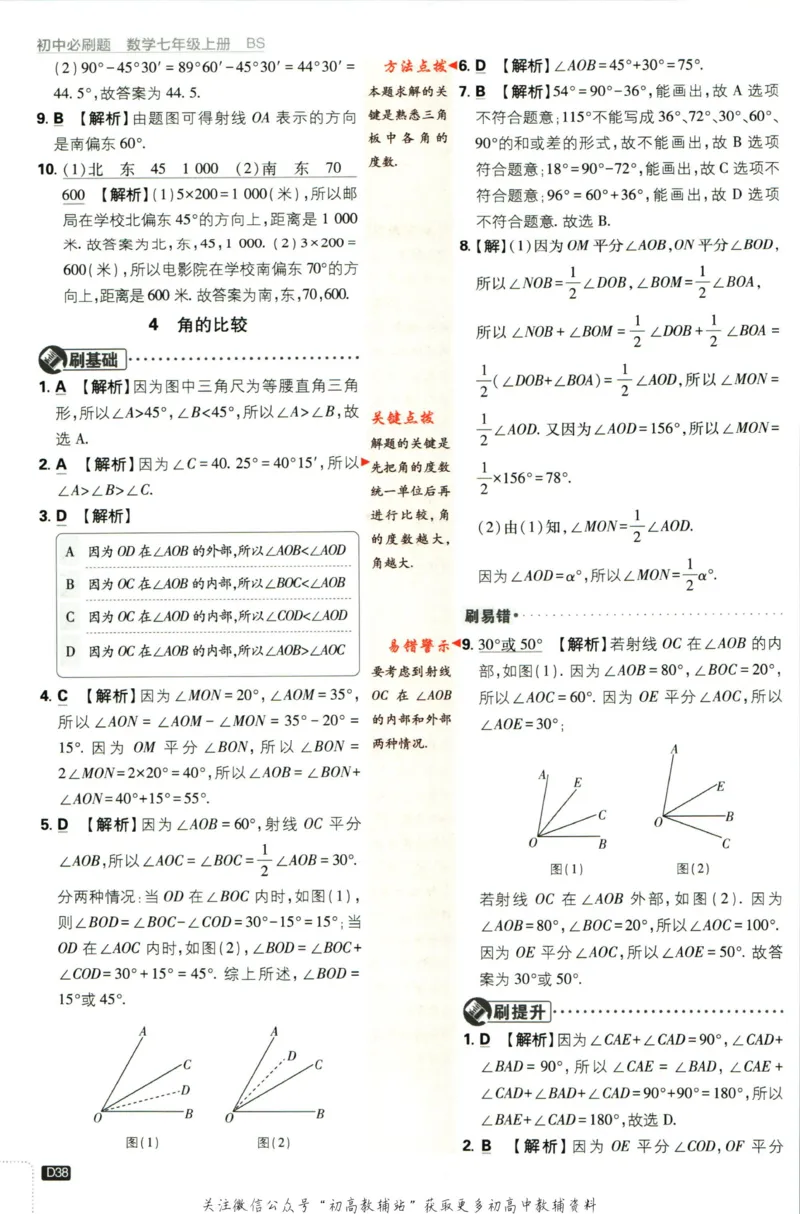 初中必刷题 数学七年级上册 BS
(2)90°-45°30′=89°60′-45°30′=44°30′=
44.5°,故答案为 44.5.
9. B 【解析】由题图可得射线 OA 表示的方向
是南偏东 60°.
10. (1)北 东 45 1 000 (2)南 东 70
600 【解析】(1)5×200=1 000(米),所以邮
局在学校北偏东 45°的方向上,距离是 1 000
米. 故答案为北,东,45,1 000. (2)3×200=
600(米),所以电影院在学校南偏东 70°的方
向上,距离是 600 米. 故答案为南,东,70,600.
4 角的比较
刷基础
1. A 【解析】因为图中三角尺为等腰直角三角
形,所以∠A>45°,∠B<45°,所以∠A>∠B,故
选 A.
2. A 【解析】因为∠C=40.25°=40°15′,所以
∠A>∠B>∠C.
3. D 【解析】
A 因为 OD 在∠AOB 的外部,所以∠AOB<∠AOD
B 因为 OC 在∠AOB 的内部,所以∠BOC<∠AOB
C 因为 OC 在∠AOD 的内部,所以∠COD<∠AOD
D 因为 OC 在∠AOB 的内部,所以∠AOB>∠AOC
4. C 【解析】因为∠MON=20°,∠AOM=35°,
所以∠AON=∠AOM-∠MON=35°-20°=
15°. 因为 OM 平分∠BON,所以∠BON=
2∠MON=2×20°=40°,所以∠AOB=∠BON+
∠AON=40°+15°=55°.
5. D 【解析】因为∠AOB=60°,射线 OC 平分
∠AOB,所以∠AOC=∠BOC=1/2∠AOB=30°.
分两种情况:当 OD 在∠BOC 内时,如图(1),
则∠BOD=∠BOC-∠COD=30°-15°=15°;当
OD 在∠AOC 内时,如图(2),∠BOD=∠BOC+
∠COD=30°+15°=45°. 综上所述,∠BOD=
15°或 45°.
A C D O B
A D C O B
图(1) 图(2)
D38
方法点拨
本题求解的关
键是熟悉三角
板中各角的
度数.
关键点拨
解题的关键是
先把角的度数
统一单位后再
进行比较,角
的度数越大,
角越大.
易错警示
要考虑到射线
OC 在∠AOB
的内部和外部
两种情况.
6. D 【解析】∠AOB=45°+30°=75°.
7. B 【解析】54°=90°-36°,能画出,故 A 选项
不符合题意;115°不能写成 36°、72°、30°、60°、
90°的和或差的形式,故不能画出,故 B 选项
符合题意;18°=90°-72°,能画出,故 C 选项不
符合题意;96°=60°+36°,能画出,故 D 选项
不符合题意. 故选 B.
8.【解】(1)因为 OM 平分∠AOB,ON 平分∠BOD,
所以∠NOB=1/2∠DOB,∠BOM=1/2∠BOA,
所以∠NOB+∠BOM=1/2∠DOB+1/2∠BOA=
1/2(∠DOB+∠BOA)=1/2∠AOD,所以∠MON=
1/2∠AOD. 又因为∠AOD=156°,所以∠MON=
1/2×156°=78°.
(2)由(1)知,∠MON=1/2∠AOD.
因为∠AOD=α°,所以∠MON=1/2α°.
刷易错
9. 30°或 50° 【解析】若射线 OC 在∠AOB 的内
部,如图(1). 因为∠AOB=80°,∠BOC=20°,
所以∠AOC=60°. 因为 OE 平分∠AOC,所以
∠AOE=30°;
A E C O B
A E B O C
图(1) 图(2)
若射线 OC 在∠AOB 外部,如图(2). 因为
∠AOB=80°,∠BOC=20°,所以∠AOC=100°.
因为 OE 平分∠AOC,所以∠AOE=50°. 故答
案为 30°或 50°.
刷提升
1. D 【解析】因为∠CAE+∠CAD=90°,∠CAD+
∠BAD=90°,所以∠CAE=∠BAD,∠CAE+
∠CAD+∠BAD+∠CAD=90°+90°=180°,所以
∠BAE+∠CAD=180°,故选 D.
2. B 【解析】因为 OE 平分∠COD,OF 平分
关注微信公众号“初高教辅站”获取更多初高中教辅资料